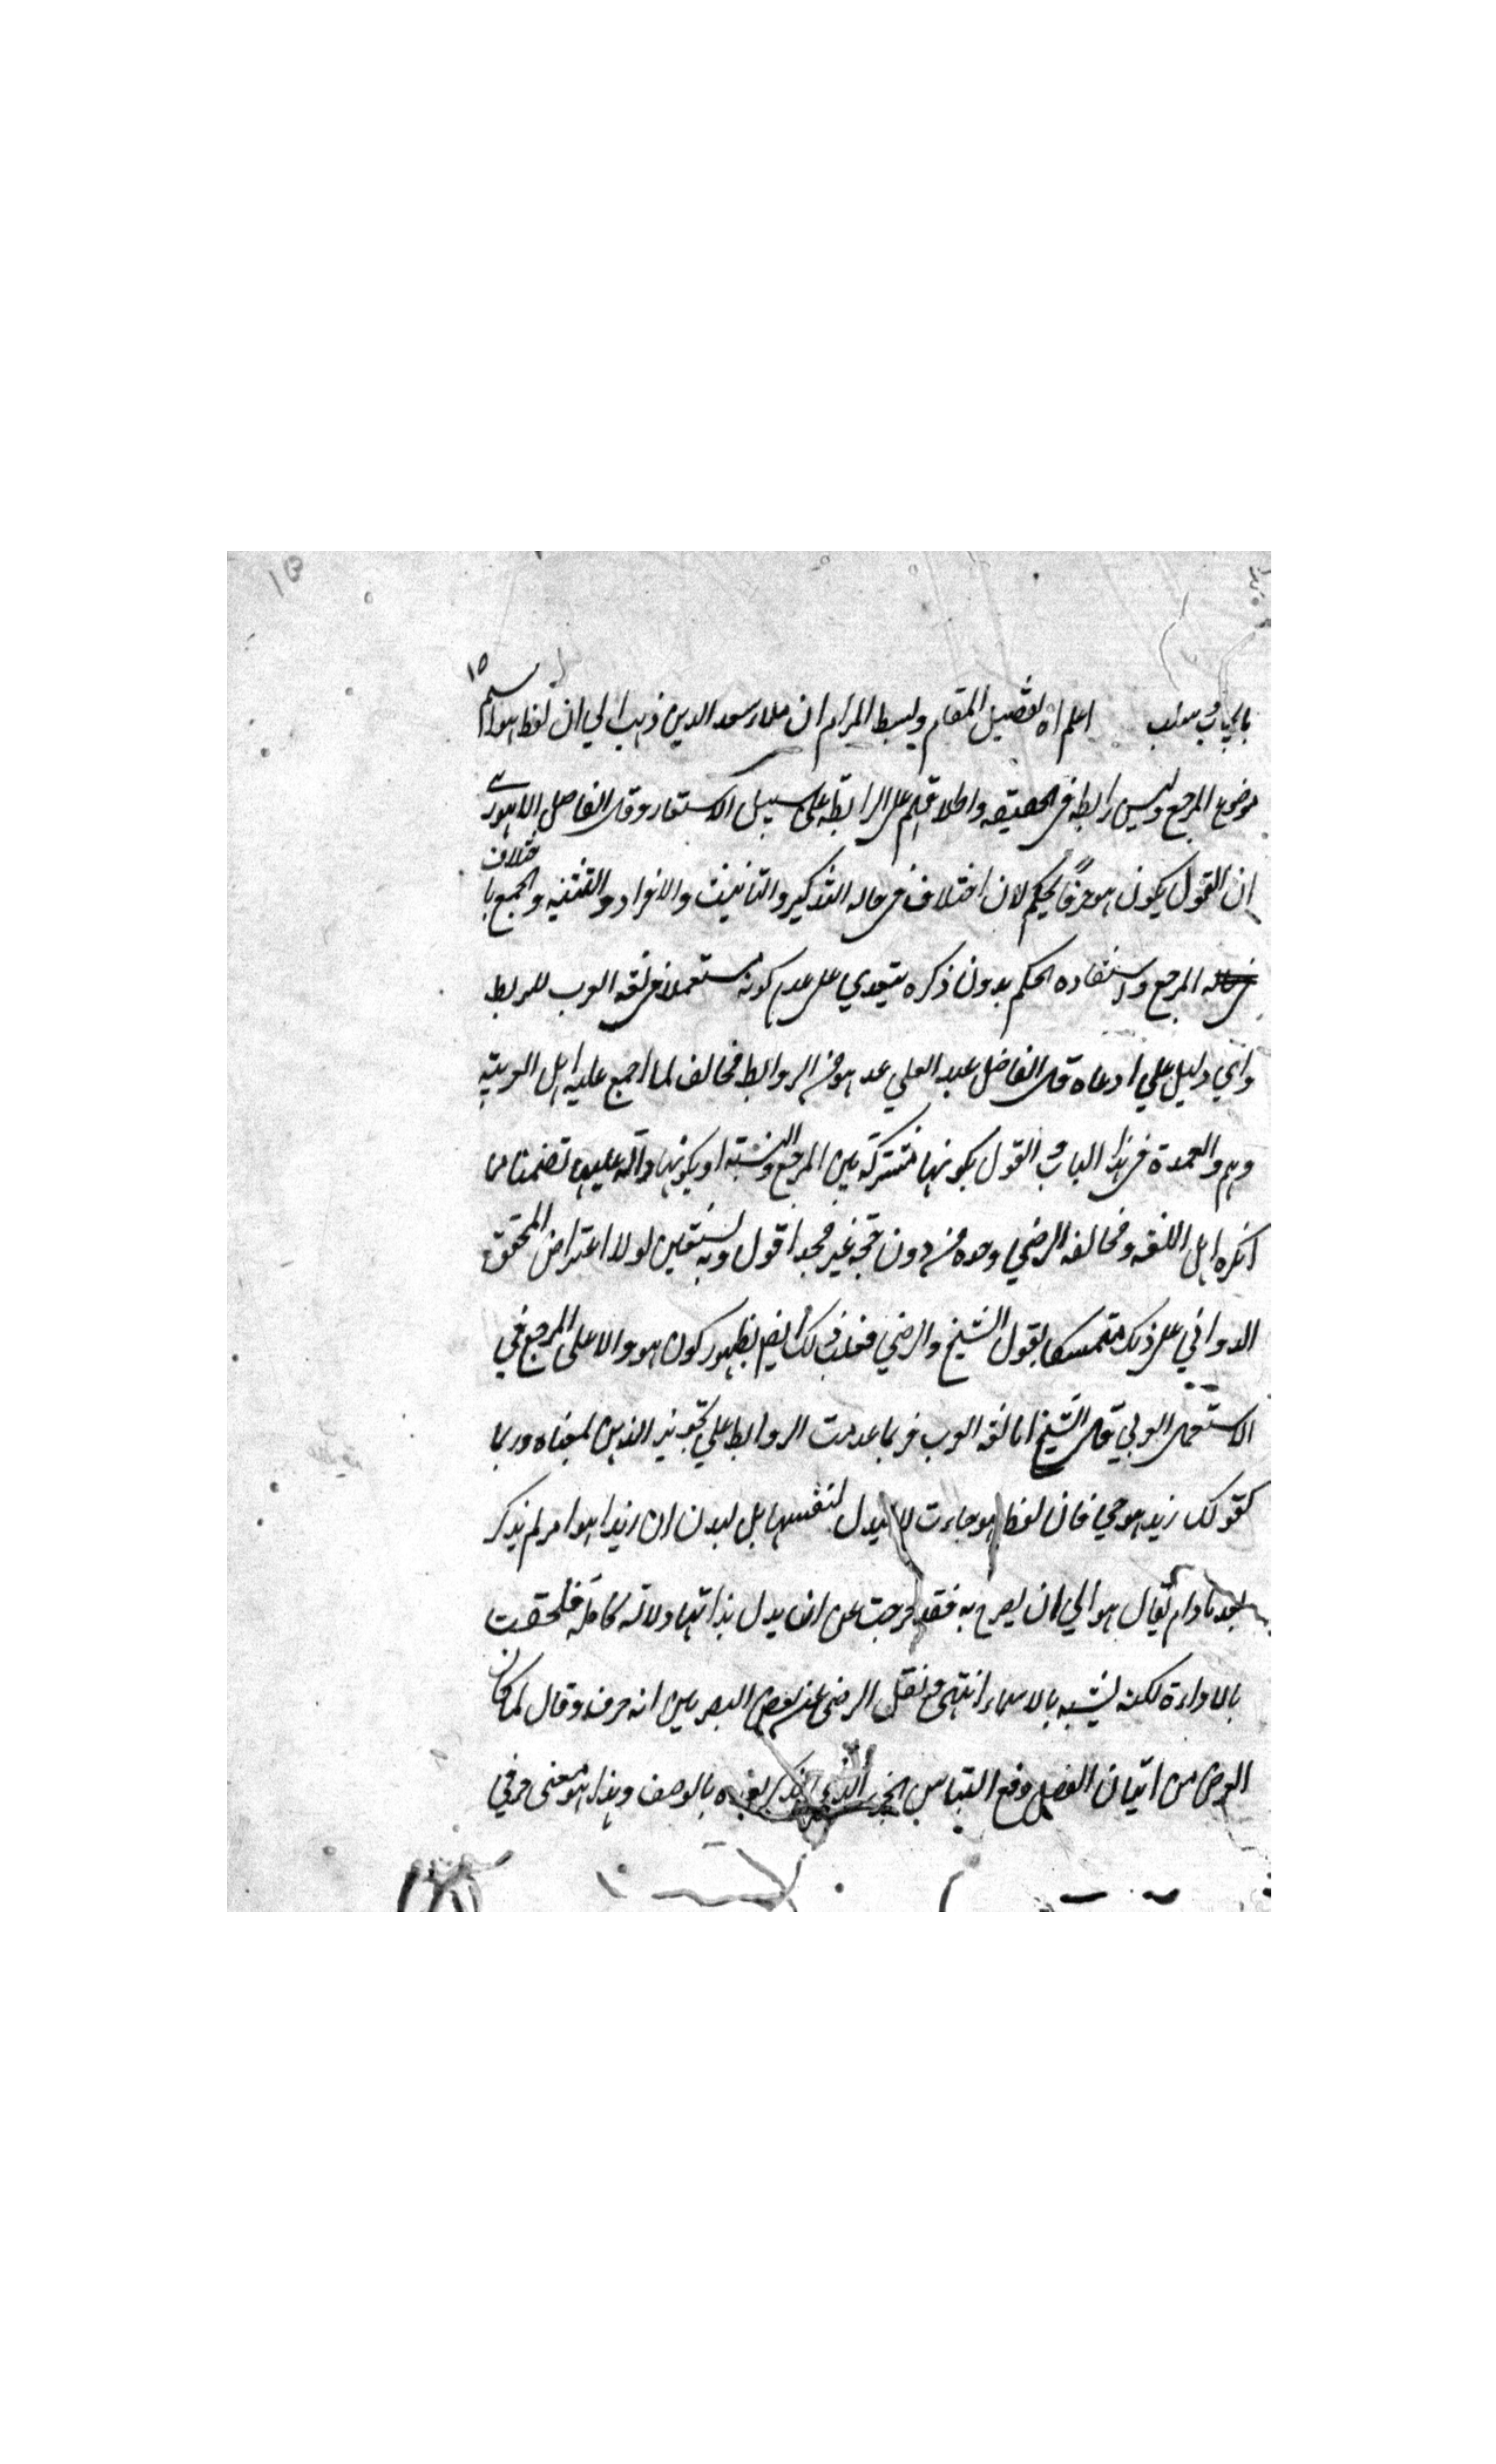 ١٥
بايجاب وسلب اعلم ان تفصيل المقام وبسط المرام ان ملا سعد الدين ذهب الي ان لفظ هو اسم
موضوع المرجع وليس رابطه في الحقيقه واطلاقهم على الرابطة على سبيل الاستعار وقال الفاضل اللاهوري
ان القول بكون هو حرفًا تحكم لان اختلافه في حاله التذكير والتانيث والافراد والتثنيه والجمع باختلاف
حاله المرجع واستفاده الحكم بدون ذكره يتعدي على عدم كونه مستعملا في لغه العرب للربط
واي دليل علي ادعاه قال الفاضل عبد العلي عد هو من الروابط مخالف لما اجمع عليه اهل العربية
وهم العمدة في هذا الباب والقول بكونها مشتركة بين المرجع والنسبة او بكونها دالة عليها تضمنا مما
انكره اهل اللغه ومخالفه الرضي وحده من دون حجة غير مجد اقول وبه نستعين لولا اعتراض المحقق
الدواني على ذلك متمسكا بقول الشيخ والرضي بظهور كون هو دالا على المرجع في
الاستعمال العربي قال الشيخ اما لغه العرب فربما عدمت الروابط علي تجويز الذهن لمعناه وربما
كقولك زيد هو حي فان لفظ هو جاءت لا ليدل لنفسها بل ليدل ان زيدا هو امر لم يذكر
بعد ما دام يقال هو الي ان يصرح به فقد خرجت عن ان يدل بذاتها دلالة كاملة فلحقت
بالاداوة لكنه يشبه بالاسماء انتهى ونقل الرضي عن بعض البصريين انه حرف وقال لما كان
الغرض من اتيان الفصل دفع التباس الخبر الذي بعده بالوصف وهذا هو معنى حرفي